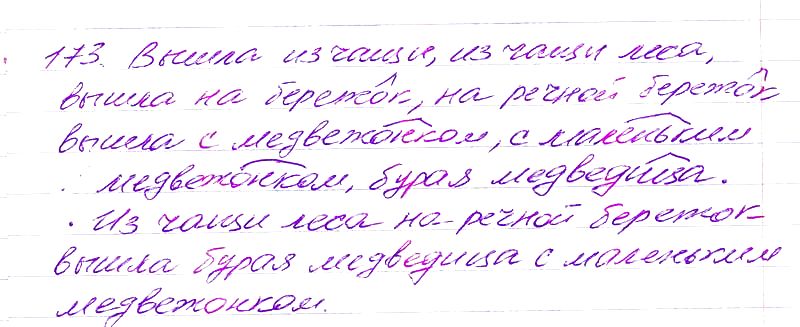 173. Вышла из чащи, из чащи леса,
вышла на бережок, на речной бережок
вышла с медвежонком, с маленьким
медвежонком, бурая медведица.
Из чащи леса на речной бережок
вышла бурая медведица с маленьким
медвежонком.